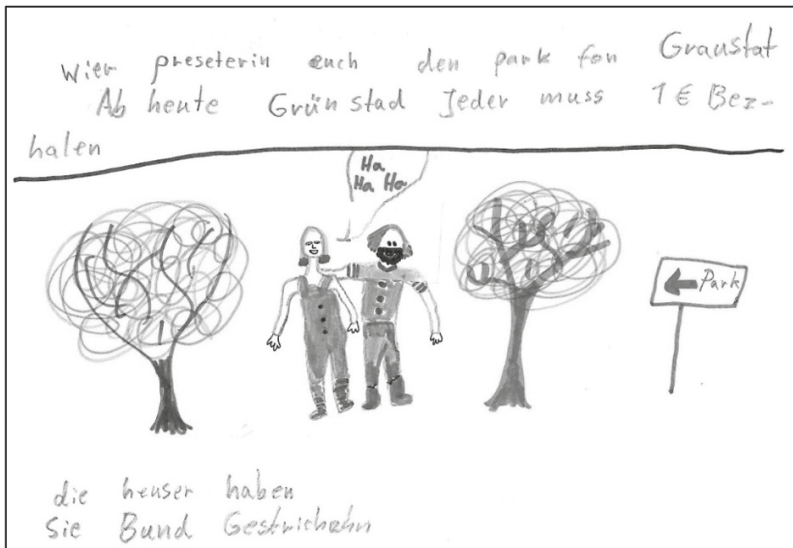 Wier preseterin euch den park fon Graustat
Ab heute Grün stad Jeder muss 1 € Bez-
halen
Ha
Ha Ha
Park
die heuser haben
Sie Bund Gestrichehn